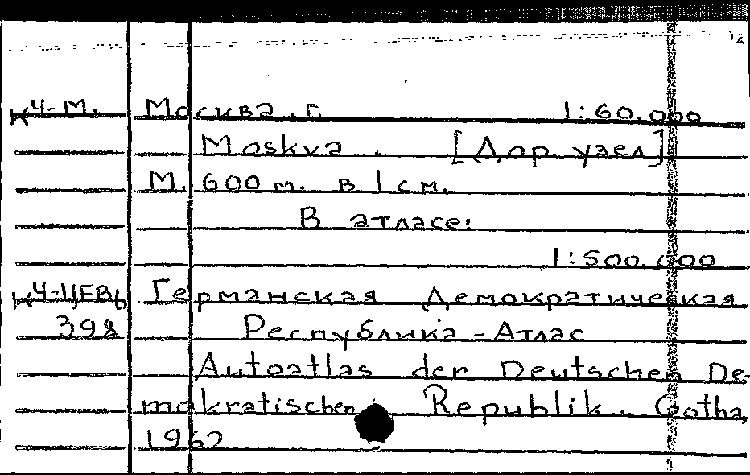 Ч-М. Москва. г. 1:60.000
Moskva. [Дор. узел]
М. 600 м. в 1 см.
В атласе:
1:500.000
Ч-ЦЕВр Германская Демократическая
398 Республика - Атлас
Autoatlas der Deutschen De-
mokratischen Republik. Gotha,
1962